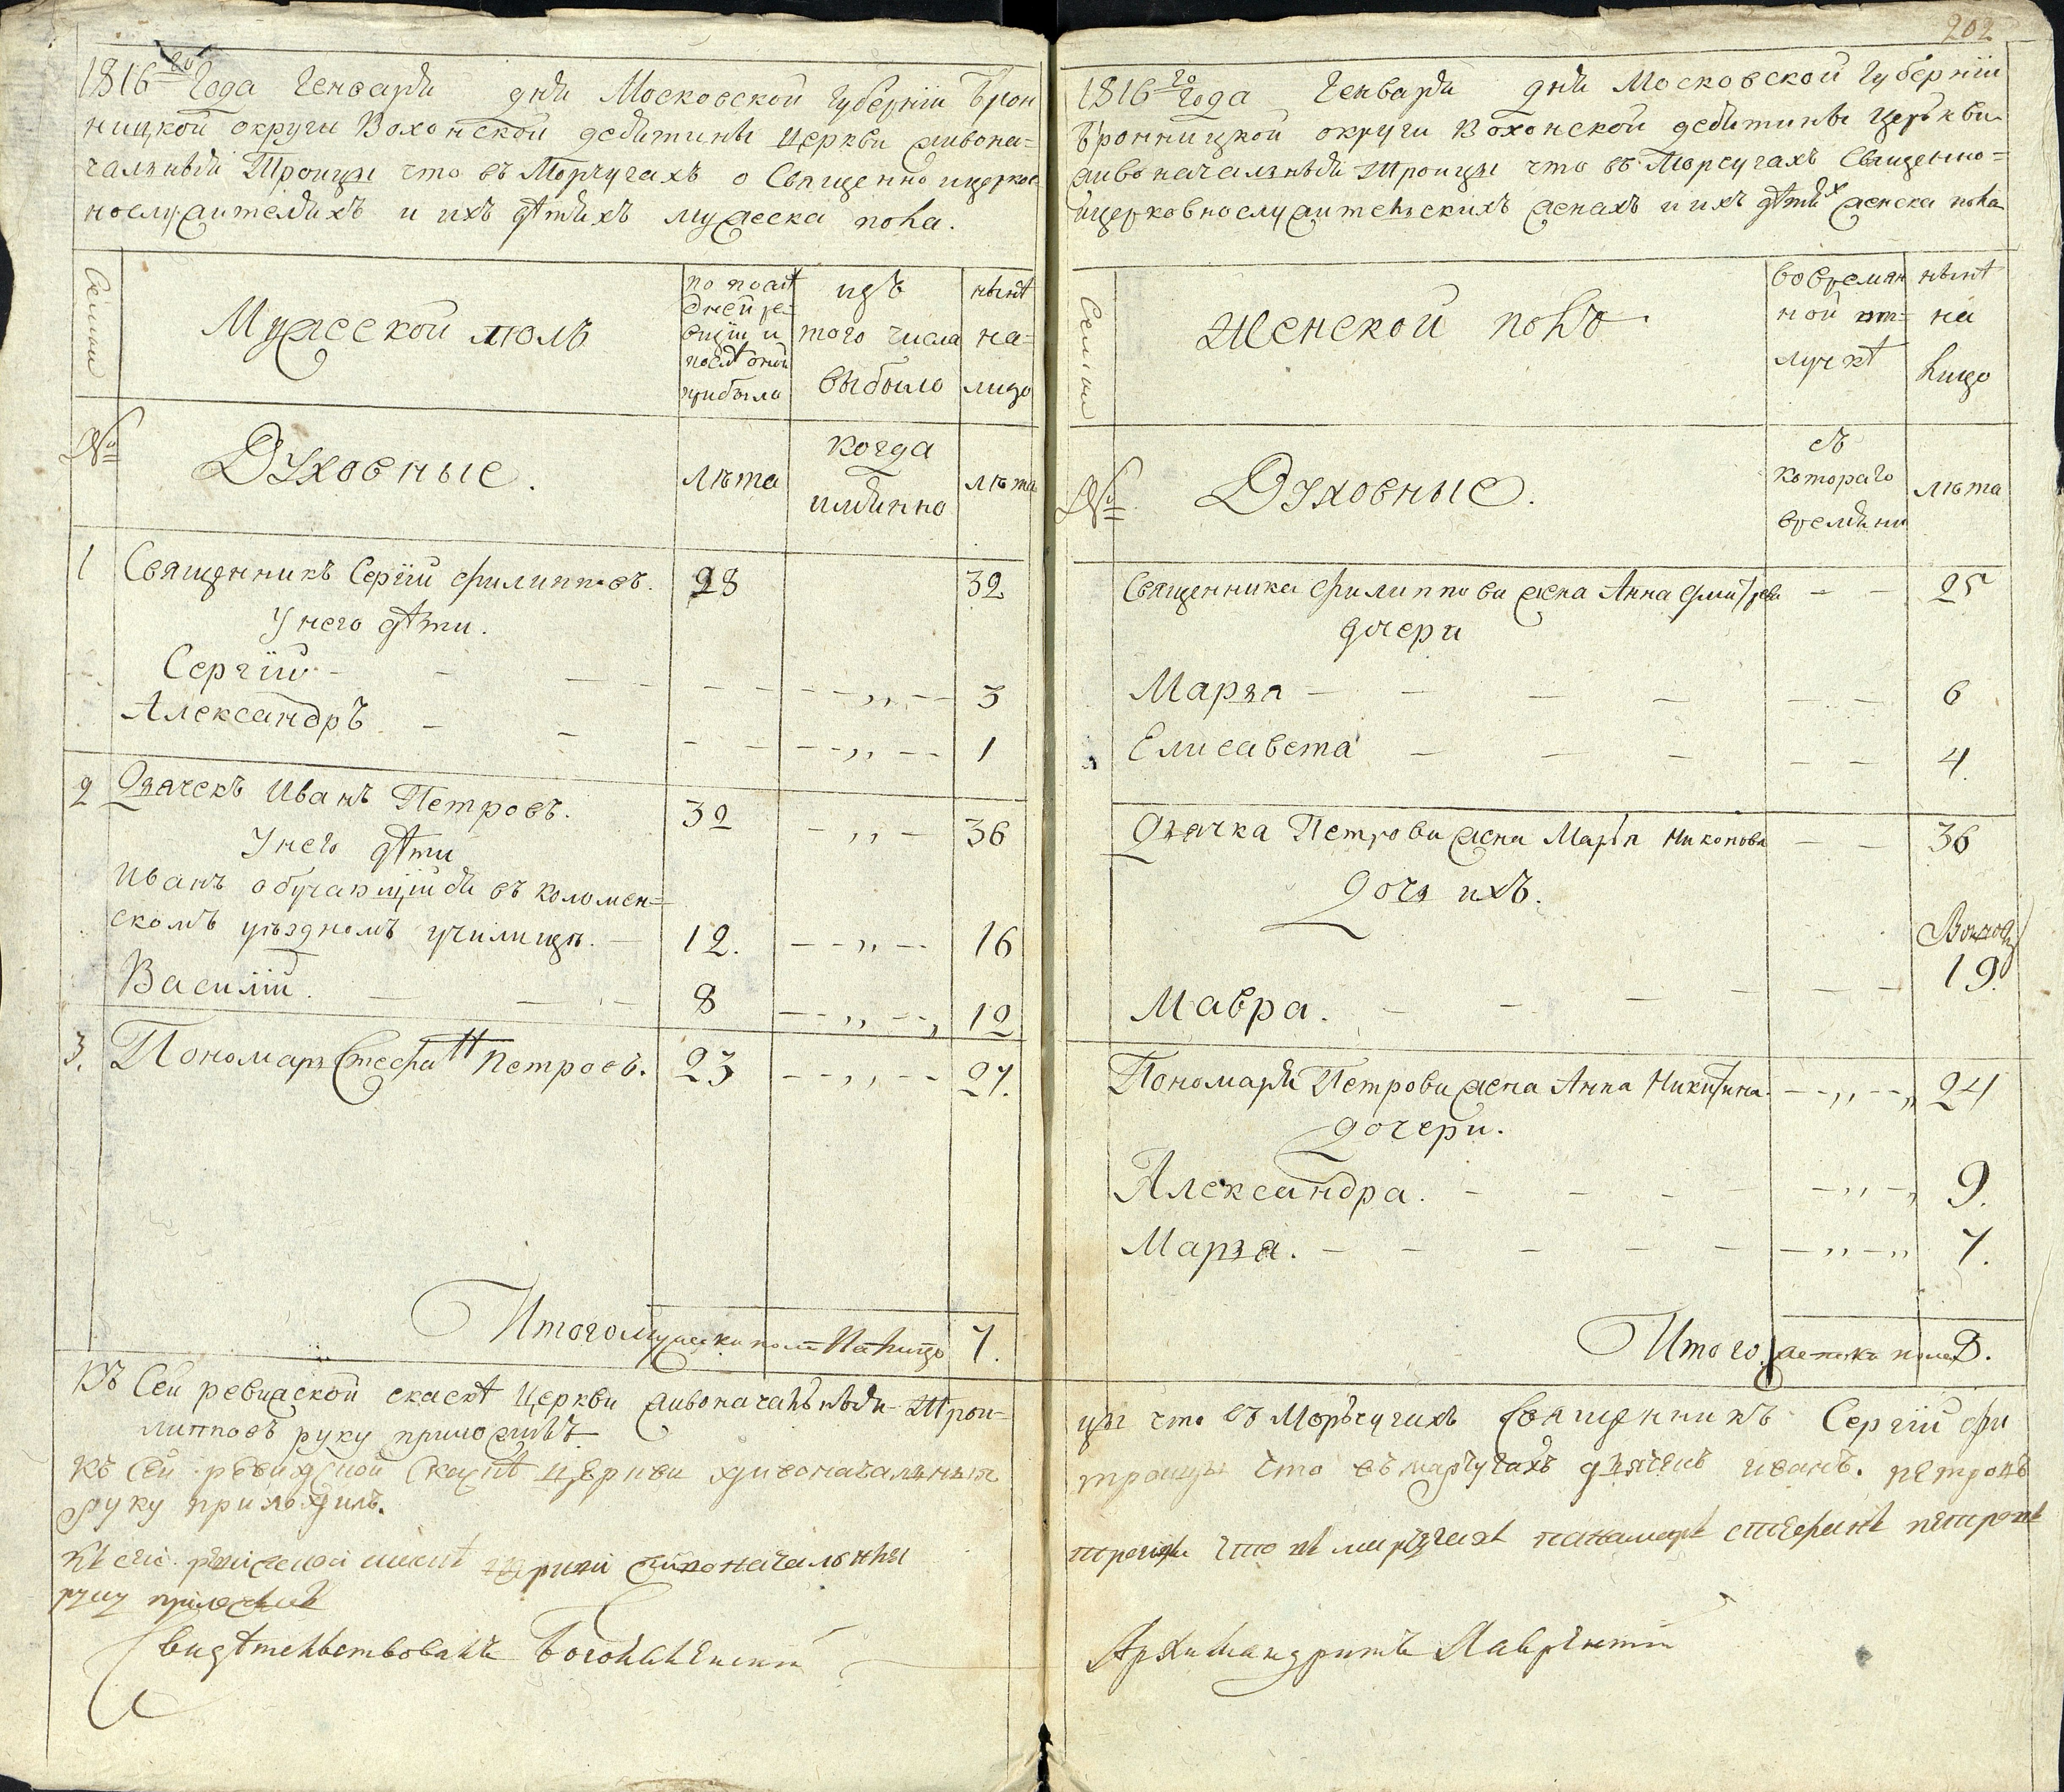 1816го Года Генваря дня Московской Губерніи Брон
ницкой округи Вохонской десятины Церкви живона=
чальныя Троицы что въ Морчугахъ о Священно ицерков
нослужителяхъ и ихъ дѣтяхъ мужеска пола.
Семьи
Мужеской полъ
по послѣ
дней ре=
визіи и
послѣ оной
прибыло
изъ
того числа
выбыло
нынѣ
на=
лицо
№
Духовные.
лѣта
когда
имянно
лѣта
1 Священникъ Сергій Филипповъ. 28 32
У него дѣти.
Сергій - - - - - - - - „ - - 3
Александръ - - - - - - „ - - 1
2 Дьячекъ Иванъ Петровъ. 32 - „ - 36
У него дѣти
Иванъ обучающійся въ Коломен=
скомъ уѣздномъ училищѣ. - 12. - - „ - - 16
Василій. - - - 8 - - „ - - „ 12
3. Пономарь Стефанъ Петровъ. 23 - - „ - - 27.
Итого мужеска пола на лицо 7.
202
1816го года Генваря дня Московской Губерніи
Бронницкой округи Вохонской десятины Церькви
живоначальныя Троицы что въ Морчугахъ Священно=
ицерковнослужительскихъ женахъ и ихъ дѣтяхъ женска пола
Семьи
Женской полъ
во времян
ной от=
лучкѣ
нынѣ
на
лицо
№
Духовные.
съ
котораго
времяни
лѣта
Священника Филиппова жена Анна - - 25
дочери
Марья - - - - - - 6
Елисавета - - - - - 4.
Дьячка Петрова жена Марья Никонова - - 36
Дочь ихъ.
Мавра. - - - - - - 19.
Пономаря Петрова жена Анна Никитина - - „ - - „ 24
дочери.
Александра. - - - - „ - „ 9.
Марья. - - - - - - „ - „ 7.
Итого женска пола 9.
Къ сей ревижской скаскѣ Церкви живоначальныя Трои=
цы что въ Морьчугахъ Священникъ Сергій Фи
липповъ руку приложилъ
Къ сей ревижской скаскѣ церкви живоначальныя
троицы что въ марчугахъ дьячекъ иванъ. петровъ
руку приложилъ.
живоначальны
троицы что въ марчугахъ панамарь стефанъ петровъ
руку приложилъ
Свидѣтельствовалъ Богоявленскій
Архимандритъ Лаврентій